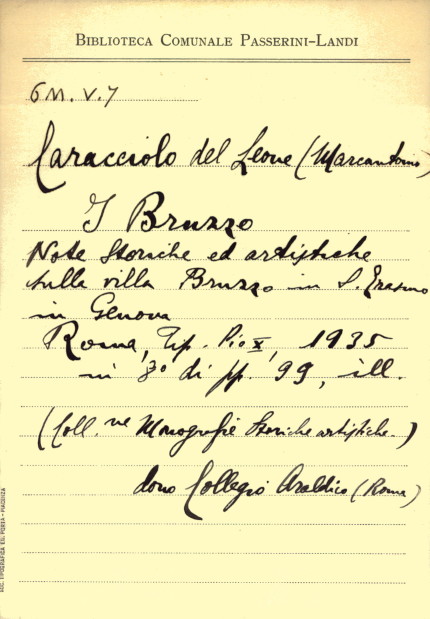 BIBLIOTECA COMUNALE PASSERINI-LANDI
6M. V. 7
Caracciolo del Leone (Marcantonio)
I Bruzzo
Note storiche ed artistiche
sulla villa Bruzzo in S. Erasmo
in Genova
Roma, Tip. Pio X, 1935
in 8° di pp. 99, ill.
(Coll.ne Monografie storiche artistiche.)
dono Collegio Araldico (Roma)
SOC. TIPOGRAFICA EDL. PORTA - PIACENZA